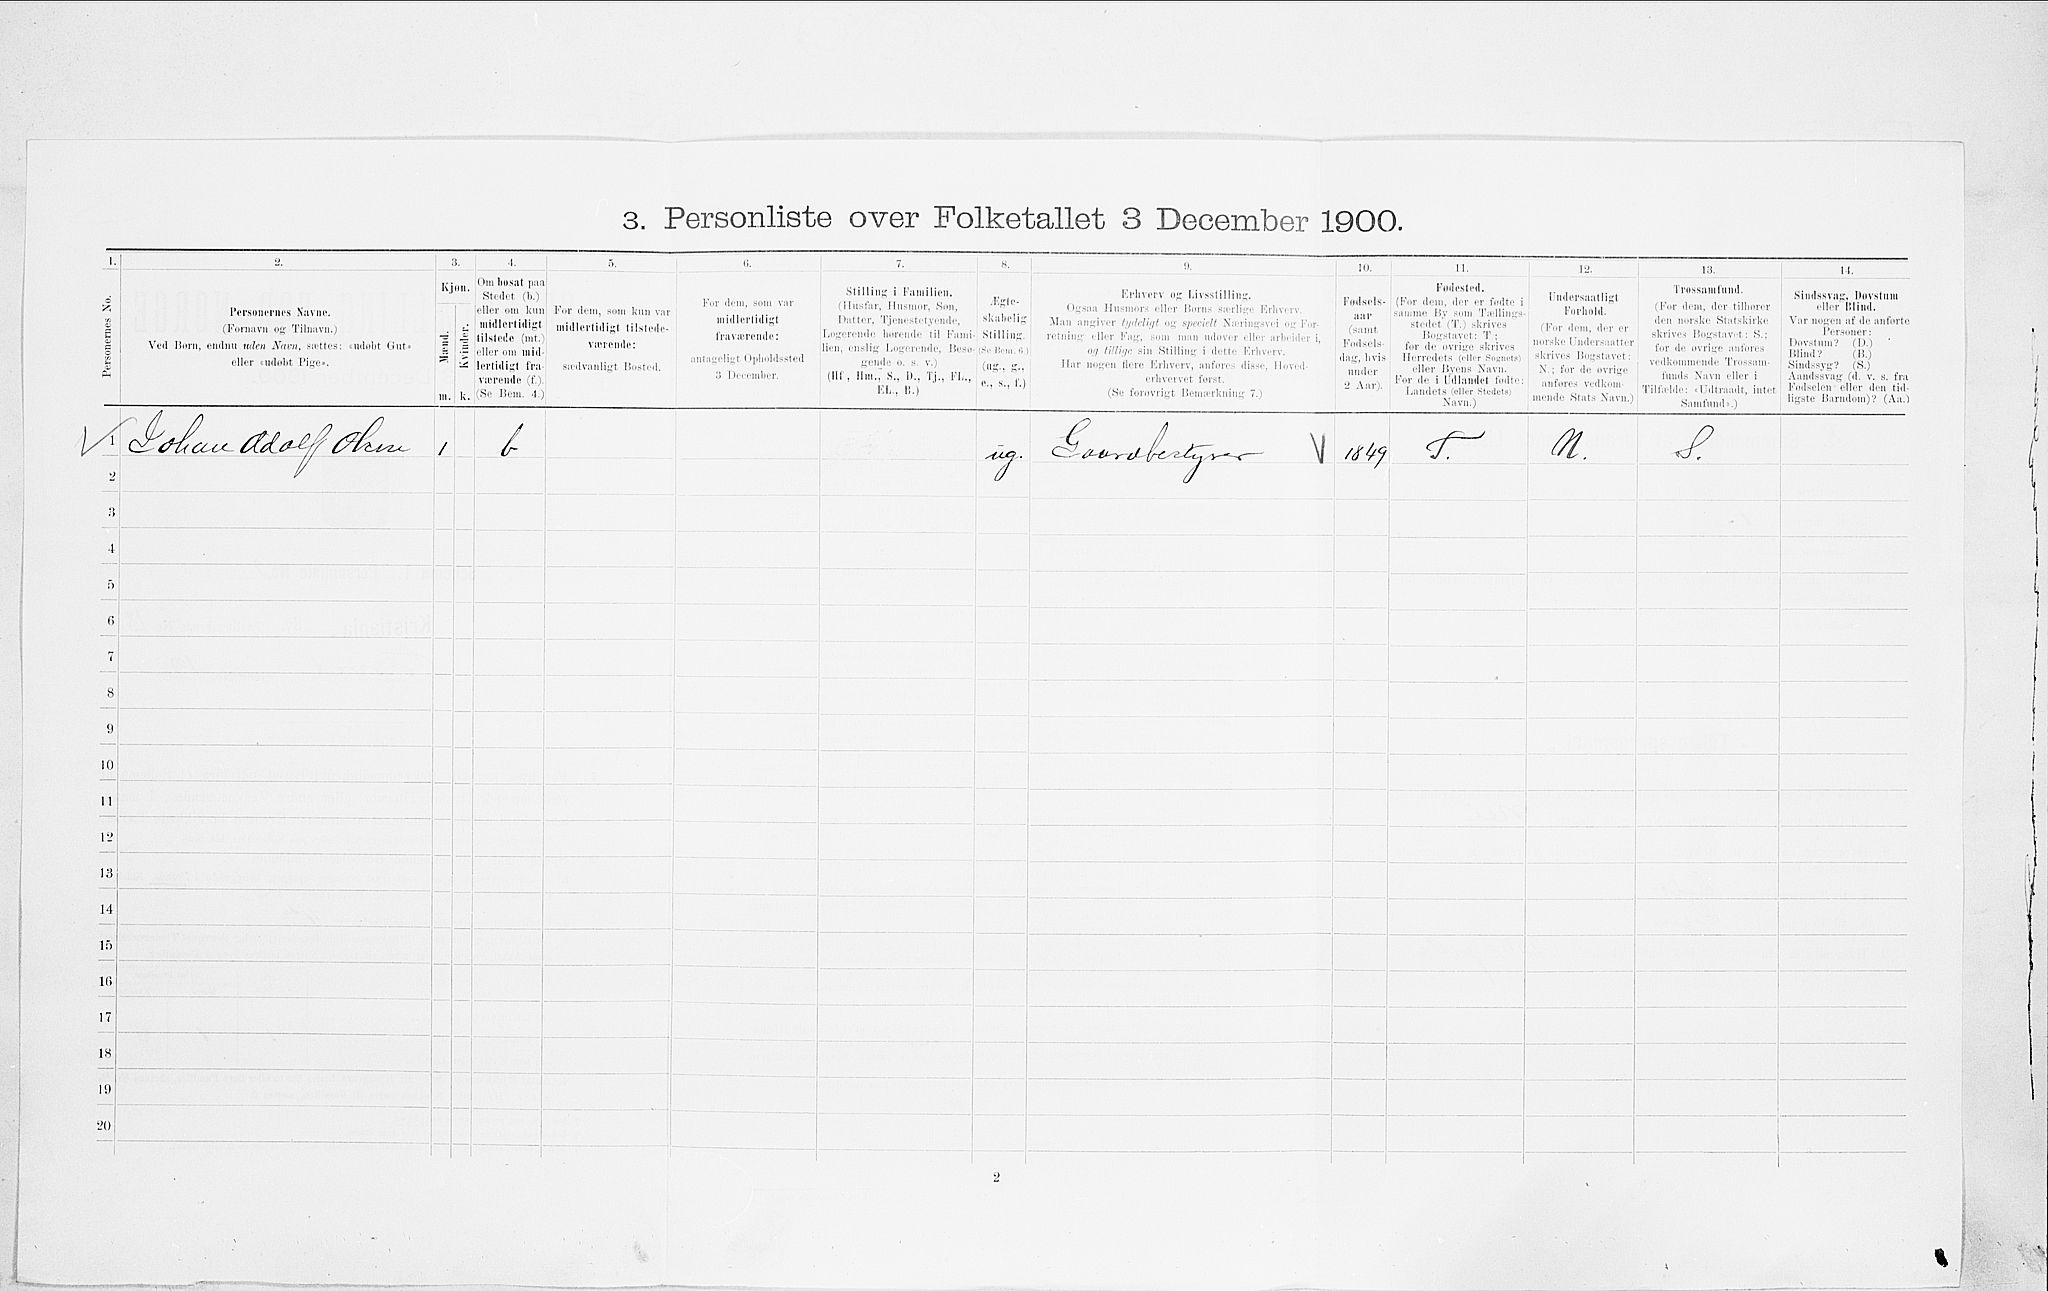 3. Personliste over Folketallet 3 December 1900.
1. 2. 3. 4. 5. 6. 7. 8. 9. 10. 11. 12. 13. 14.
Personernes No.
Personernes Navne.
(Fornavn og Tilnavn.)
Ved Børn, endnu uden Navn, sættes: «udøbt Gut»
eller «udøbt Pige».
Kjøn.
Mænd.
Kvinder.
m. k.
Om bosat paa
Stedet (b.)
eller om kun
midlertidigt
tilstede (mt.)
eller om mid-
lertidigt fra-
værende (f.).
(Se Bem. 4.)
For dem, som kun var
midlertidigt tilstede-
værende:
sædvanligt Bosted.
For dem, som var
midlertidigt
fraværende:
antageligt Opholdssted
3 December.
Stilling i Familien.
(Husfar, Husmor, Søn,
Datter, Tjenestetyende,
Logerende hørende til Fami-
lien, enslig Logerende, Besø-
gende o. s. v.)
(Hf., Hm., S., D., Tj., FL.,
EL., B.)
Ægte-
skabelig
Stilling.
(Se Bem. 6.)
(ug., g.,
e., s., f.)
Erhverv og Livsstilling.
Ogsaa Husmors eller Børns særlige Erhverv.
Man angiver tydeligt og specielt Næringsvei og For-
retning eller Fag, som man udøver eller arbeider i,
og tillige sin Stilling i dette Erhverv.
Har nogen flere Erhverv, anføres disse, Hoved-
erhvervet først.
(Se forøvrigt Bemærkning 7.)
Fødsels-
aar
(samt
Fødsels-
dag, hvis
under
2 Aar).
Fødested.
(For dem, der er fødte i
samme By som Tællings-
stedet (T.) skrives
Bogstavet: T.;
for de øvrige skrives
Herredets (eller Sognets)
eller Byens Navn.
For de i Udlandet fødte:
Landets (eller Stedets)
Navn.)
Undersaatligt
Forhold.
(For dem, der er
norske Undersaatter
skrives Bogstavet:
N.; for de øvrige
anføres vedkom-
mende Stats Navn.)
Trossamfund.
(For dem, der tilhører
den norske Statskirke
skrives Bogstavet: S.;
for de øvrige anføres
vedkommende Trossam-
funds Navn eller i
Tilfælde: «Udtraadt, intet
Samfund».)
Sindssvag, Døvstum
eller Blind.
Var nogen af de anførte
Personer:
Døvstum? (D.)
Blind? (B.)
Sindssyg? (S.)
Aandssvag (d. v. s. fra
Fødselen eller den tid-
ligste Barndom)? (Aa.)
1 Johan Adolf Olsen 1 b ug. Gaardbestyrer 1849 T. N. S.
2
3
4
5
6
7
8
9
10
11
12
13
14
15
16
17
18
19
20
2